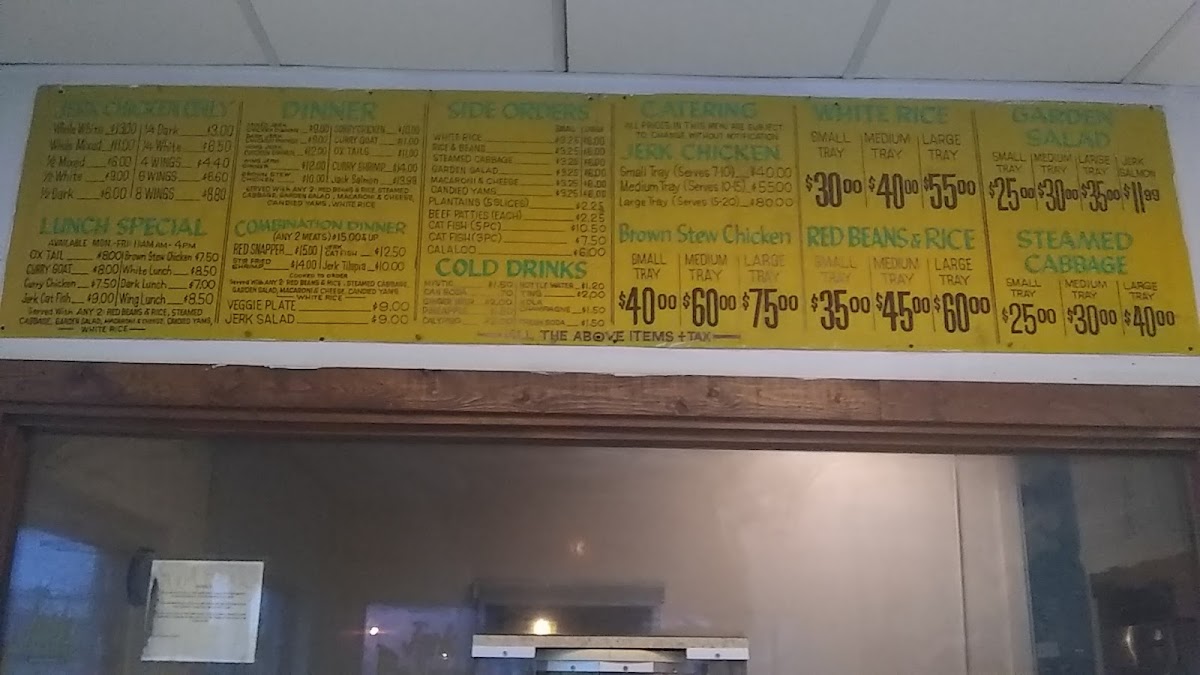 JERK CHICKEN ONLY
Whole White $13.00 1/4 Dark $3.00
Whole Mixed $11.00 1/4 White $3.50
1/2 Mixed $6.00 4 WINGS $4.40
1/2 White $9.00 6 WINGS $6.60
1/2 Dark $6.00 8 WINGS $8.80
LUNCH SPECIAL
AVAILABLE MON-FRI 11AM AM-4PM
OX TAIL $8.00 Brown Stew Chicken $7.50
CURRY GOAT $8.00 White Lunch $8.50
Curry Chicken $7.50 Dark Lunch $7.00
Jerk Cat Fish $9.00 Wing Lunch $8.50
Served With ANY 2: RED BEANS & RICE, STEAMED
CABBAGE, GARDEN SALAD, MACARONI & CHEESE, CANDIED YAMS,
WHITE RICE
DINNER
CURRY CHICKEN $10.00
CURRY GOAT $11.00
OX TAILS $11.00
CURRY SHRIMP $14.00
BROWN STEW
CHICKEN $10.00 Jack Salmon $13.99
SERVED WITH ANY 2: RED BEANS & RICE, STEAMED
CABBAGE, GARDEN SALAD, MACARONI & CHEESE,
CANDIED YAMS, WHITE RICE
COMBINATION DINNER
(ANY 2 MEATS) $15.00 & UP
RED SNAPPER $15.00 CATFISH $12.50
STIR FRIED
SHRIMP $14.00 Jerk Tilapia $10.00
COOKED TO ORDER
Served With ANY 2: RED BEANS & RICE, STEAMED CABBAGE,
GARDEN SALAD, MACARONI & CHEESE, CANDIED YAMS,
WHITE RICE
VEGGIE PLATE $9.00
JERK SALAD $9.00
SIDE ORDERS
SMALL LARGE
WHITE RICE $3.25 $6.00
RICE & BEANS $3.25 $6.00
STEAMED CABBAGE $3.25 $6.00
GARDEN SALAD $3.25 $6.00
MACARONI & CHEESE $3.25 $6.00
CANDIED YAMS $3.25 $6.00
PLANTAINS (5 SLICES) $2.25
BEEF PATTIES (EACH) $2.25
CAT FISH (5 PC) $10.50
CAT FISH (3 PC) $7.50
CALALOO $6.00
COLD DRINKS
MYSTIC $1.50 BOTTLE WATER $1.20
TING $2.00
CHAMPAGNE $1.50
$1.50
ALL THE ABOVE ITEMS + TAX
CATERING
ALL PRICES IN THIS MENU ARE SUBJECT
TO CHANGE WITHOUT NOTIFICATION
JERK CHICKEN
Small Tray (Serves 7-10) $40.00
Medium Tray (Serves 10-15) $55.00
Large Tray (Serves 15-20) $80.00
Brown Stew Chicken
SMALL TRAY MEDIUM TRAY LARGE TRAY
$40.00 $60.00 $75.00
WHITE RICE
SMALL TRAY MEDIUM TRAY LARGE TRAY
$30.00 $40.00 $55.00
RED BEANS & RICE
SMALL TRAY MEDIUM TRAY LARGE TRAY
$35.00 $45.00 $60.00
GARDEN
SALAD
SMALL TRAY MEDIUM TRAY LARGE TRAY JERK SALMON
$25.00 $30.00 $35.00 $11.99
STEAMED
CABBAGE
SMALL TRAY MEDIUM TRAY LARGE TRAY
$25.00 $30.00 $40.00